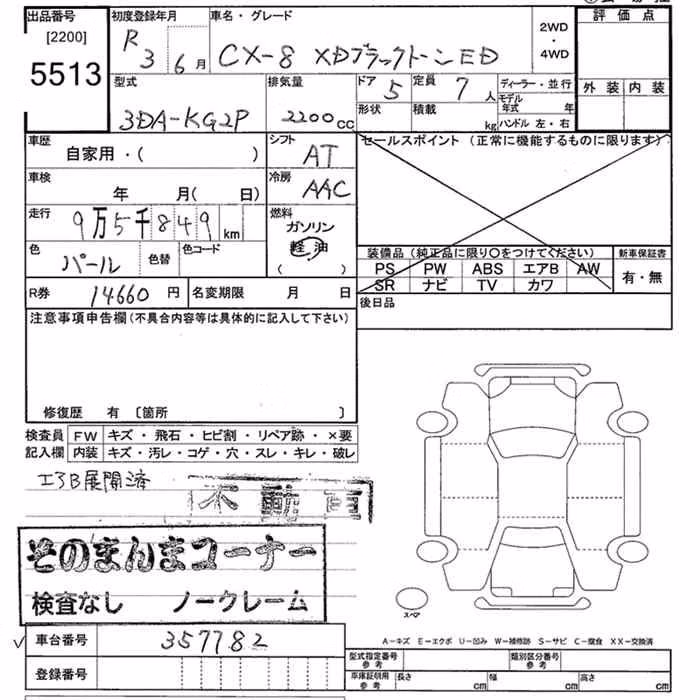 出品番号
[2200]
5513
初度登録年月
R 3 6月
車名・グレード
CX-8 XDブラックトーンED
2WD
・
4WD
評価点
外装 内装
型式
3DA-KG2P
排気量
2200cc
ドア 5
定員 7人
形状
積載 kg
ディーラー・並行
モデル年式 年
ハンドル 左・右
車歴
自家用・( )
シフト
AT
車検
年 月( 日)
冷房
AAC
走行
9万5千849km
燃料
ガソリン
軽油
( )
色
パール
色替
色コード
セールスポイント (正常に機能するものに限ります)
装備品 (純正品に限り○をつけてください)
PS PW ABS エアB AW
SR ナビ TV カワ
新車保証書
有・無
R券 14660円
名変期限 月 日
後日品
注意事項申告欄(不具合内容等は具体的に記入して下さい)
修復歴 有 〔箇所 〕
検査員 FW キズ・飛石・ヒビ割・リペア跡・×要
記入欄 内装 キズ・汚レ・コゲ・穴・スレ・キレ・破レ
エアB展開済
不動車
そのまんまコーナー
検査なし ノークレーム
スペア
✓ 車台番号 357782
登録番号
A-キズ E-エクボ U-凹み W-補修跡 S-サビ C-腐食 XX-交換済
型式指定番号 参考
類別区分番号 参考
車庫証明用 参考 長さ cm 幅 cm 高さ cm